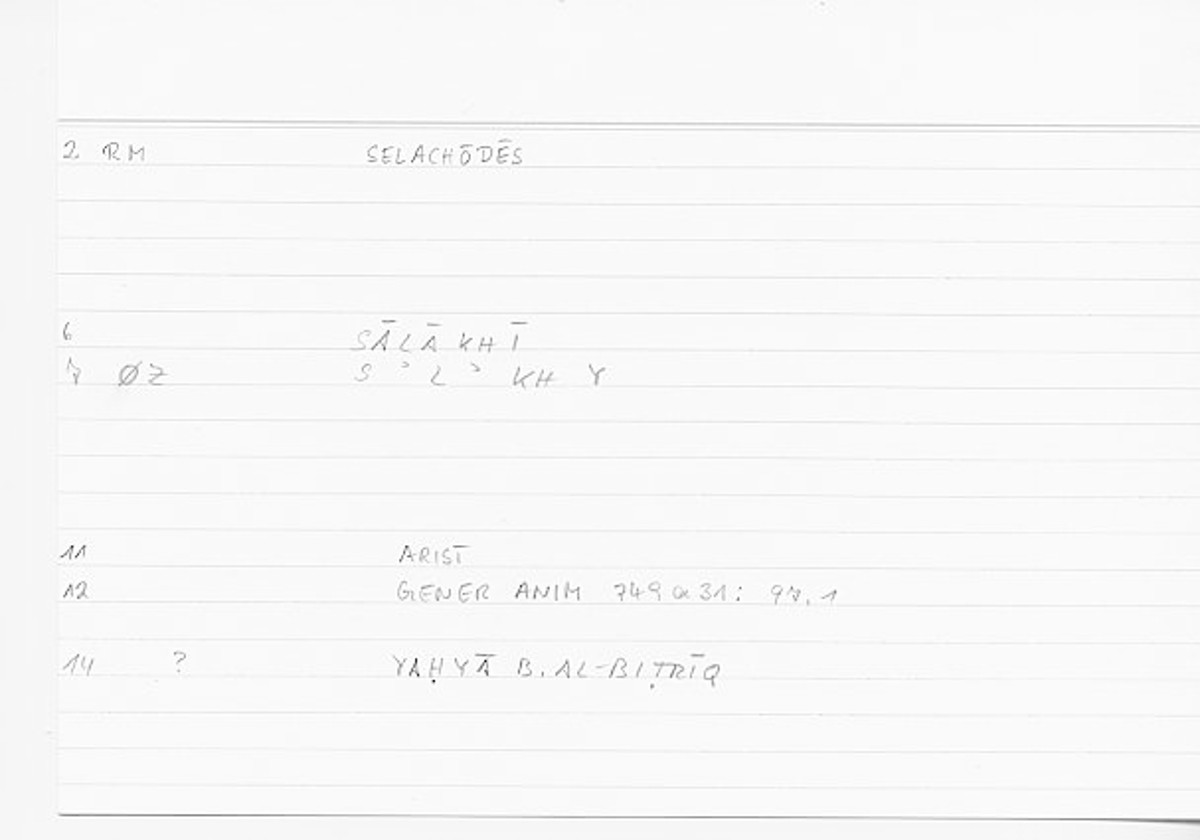 2 RM SELACHŌDĒS
6 SĀLĀKHĪ
7 ØZ S ʾ L ʾ KH Y
11 ARIST
12 GENER ANIM 749a31: 97,1
14 ? YAḤYĀ B. AL-BIṬRĪQ